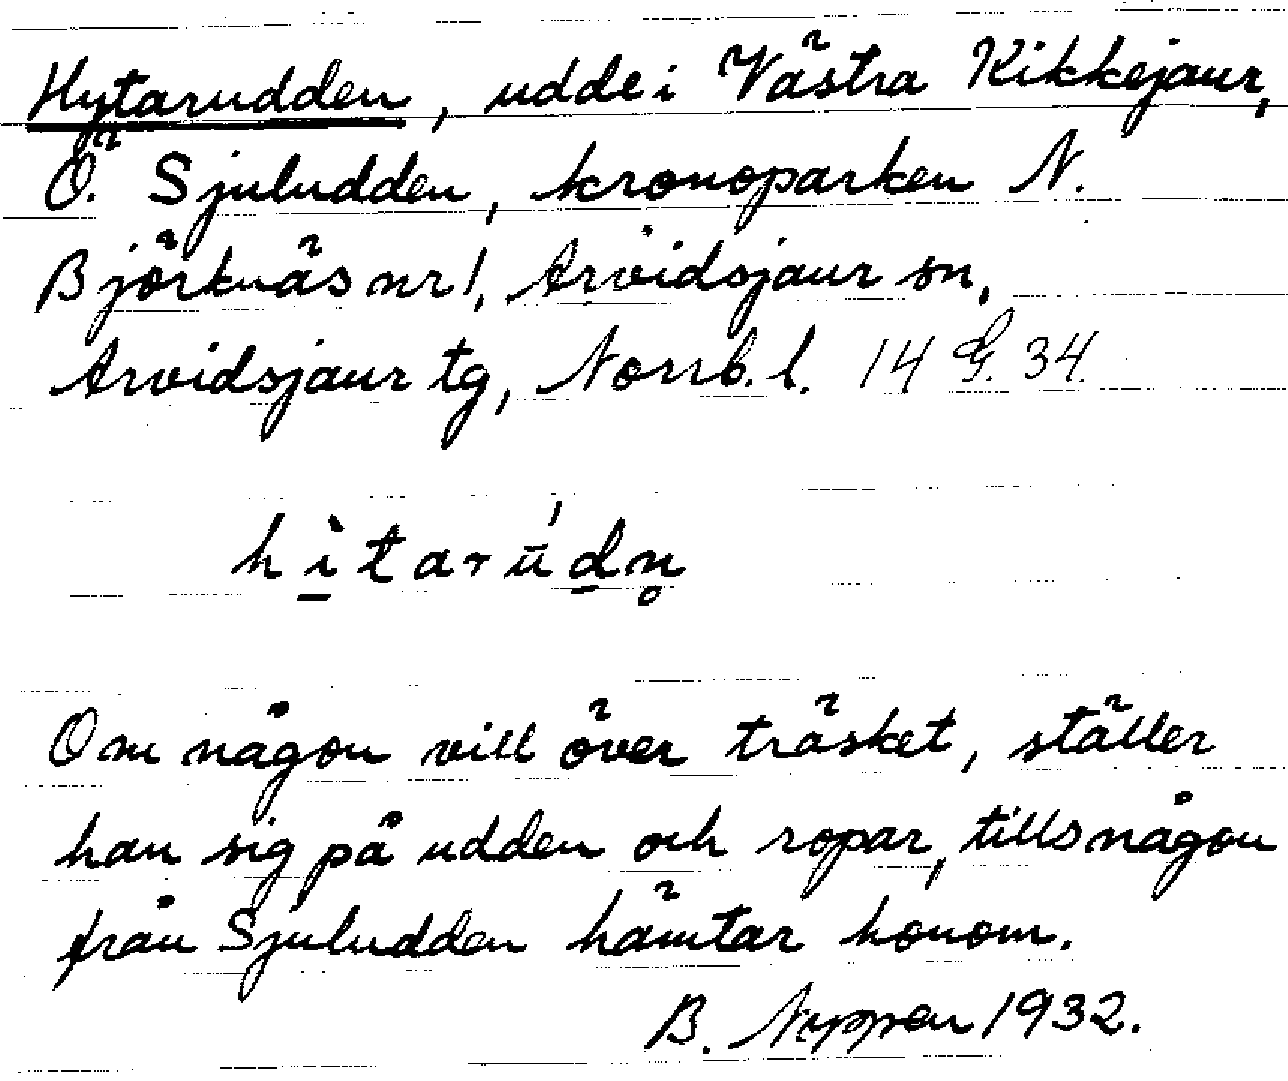 Hytarudden, udde i Västra Kikkejaur,
Ö. Sjuludden, kronoparken N.
Björknäs nr 1, Arvidsjaur sn,
Arvidsjaur tg, Norrb. l. 14 G. 34.
h ì̱ t a r ū́ d̲ n̥
Om någon vill över träsket, ställer
han sig på udden och ropar, tills någon
från Sjuludden hämtar honom.
B. Nyppen 1932.